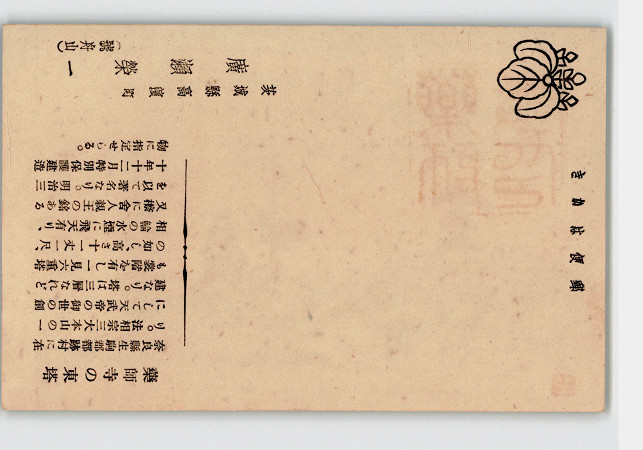 郵便はかき
藥師寺の東塔
奈良縣生駒郡都跡村に在
り。法相宗三大本山の一
にして天武帝の御世の創
建なり。塔は三層なれど
も裳階を有し一見六重塔
の如し、高さ十一丈一尺、
相輪の水煙に飛天有り、
又檫に舍人親王の銘ある
を以て著名なり。明治三
十年十二月特別保護建造
物に指定せらる。
茨城縣高濱町
廣瀬榮一
(號舟山)